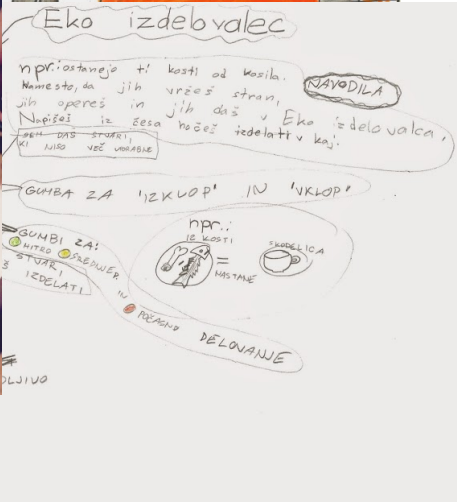 Eko izdelovalec
npr.: ostanejo ti kosti od kosila.
Namesto, da jih vržeš stran,
jih opereš in jih daš v Eko izdelovalca,
Napišeš iz česa hočeš izdelati v kaj.
NAVODILA
SEM DAŠ STVARI,
KI NISO VEČ UPORABNE
GUMBA ZA 'IZKLOP' IN 'VKLOP'
npr.:
IZ KOSTI
SKODELICA
=
NASTANE
GUMBI ZA:
HITRO
STVARI
IZDELATI
IN
POČASNO
DELOVANJE